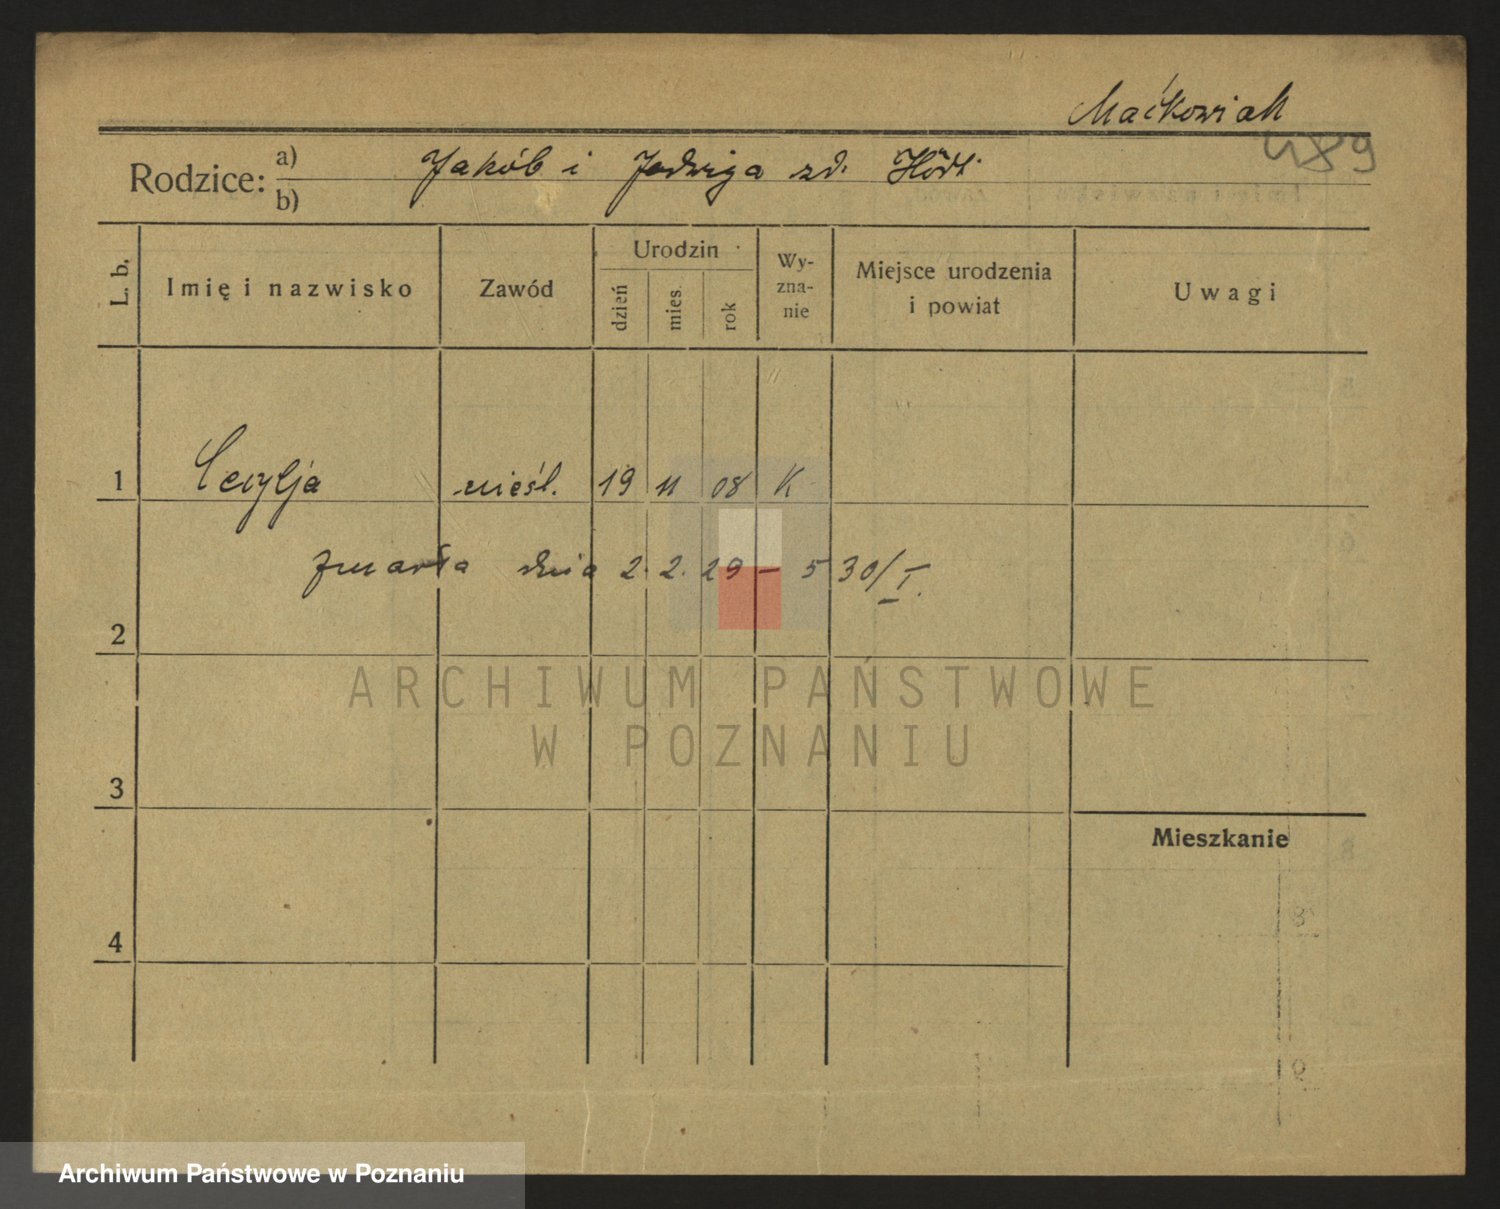 Maćkowiak
489
Rodzice: a) Jakób i Jadwiga zd. Hödt
b)
L. b. Imię i nazwisko Zawód Urodzin dzień mies. rok Wyznanie Miejsce urodzenia i powiat Uwagi
1 Cecylja nieśl. 19 11 08 K
zmarła dnia 2. 2. 29 – 530/I.
2
ARCHIWUM PAŃSTWOWE
W POZNANIU
3
Mieszkanie
4
Archiwum Państwowe w Poznaniu